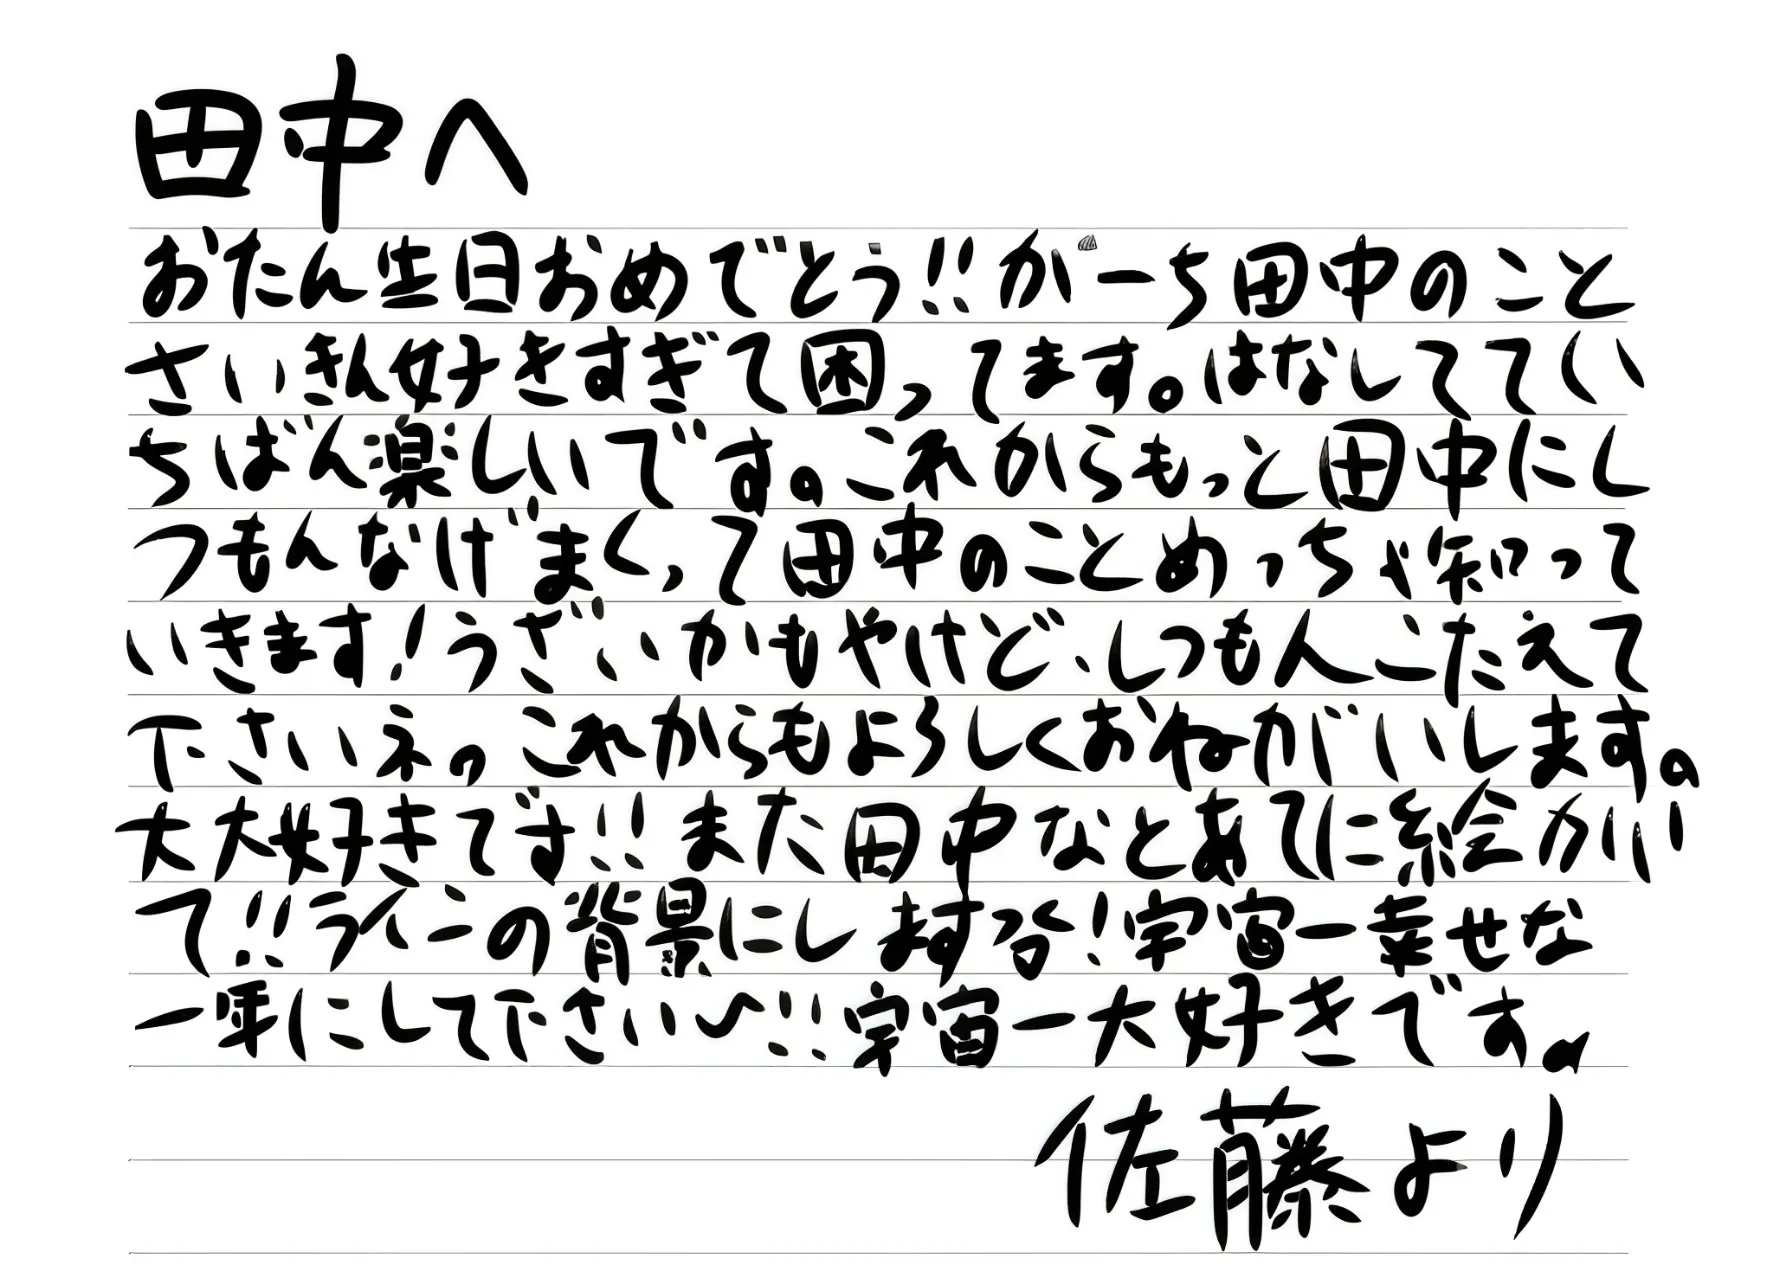 田中へ
おたん生日おめでとう!!がーち田中のこと
さいきん好きすぎて困ってます。はなしてててい
ちばん楽しいです。これからもっと田中にし
つもんなげまくって田中のことめっちゃ知って
いきます!うざいかもやけど、しつもんこたえて
下さいネ。これからもよろしくおねがいします。
大大好きです!!また田中なとあてに絵かい
て!!ラインの背景にします!宇宙一幸せな
一年にして下さい〜!!宇宙一大好きです。
佐藤より